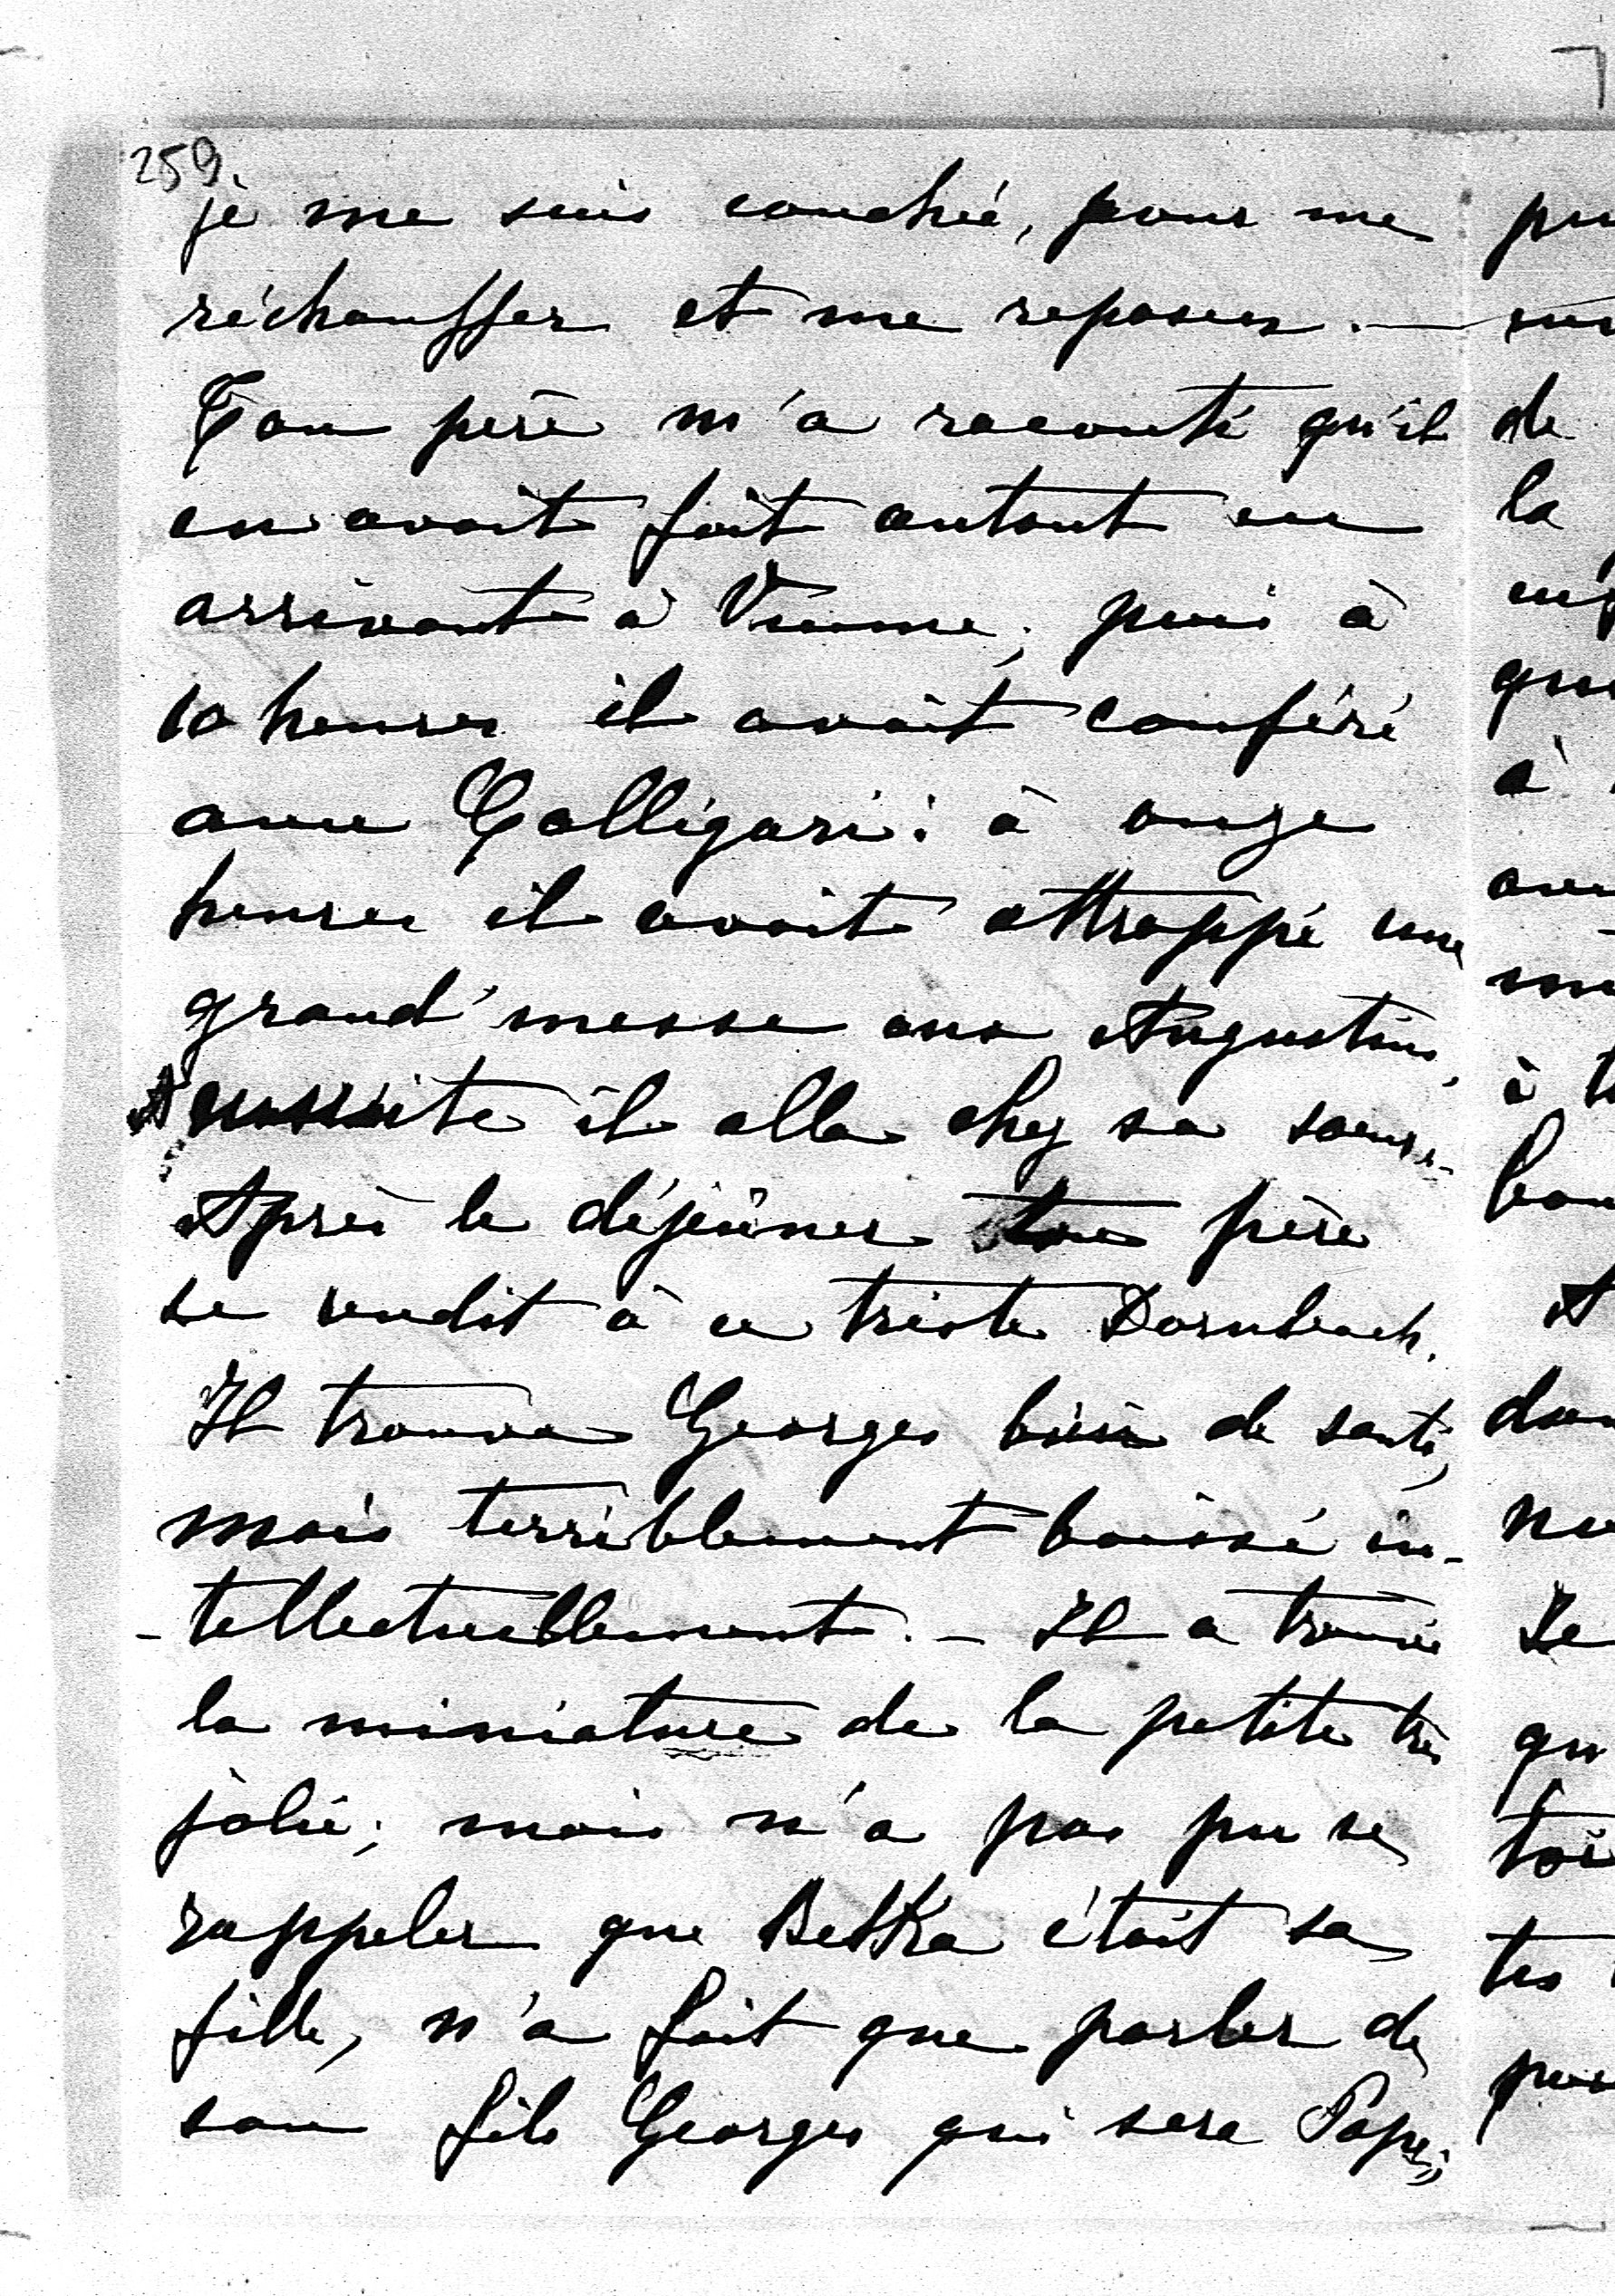 259.
je me suis couchée, pour me
réchauffer et me reposer. —
Ton père m'a raconté qu'il
en avait fait autant en
arrivant à Vienne; puis à
10 heures il avait conféré
avec Calligari: à onze
heures il avait attrappé une
grand'messe aux Augustins,
ensuite il alla chez sa soeur. -
Après le déjeûner ton père
se rendit à ce triste Dornbach.
Il trouva Georges bien de santé,
mais terriblement baissé in-
- tellectuellement. - Il a trouvé
la miniature de la petite très
jolie; mais n'a pas pu se
rappeler que Betka était sa
fille, n'a fait que parler de
son fils Georges qui sera Pape;
de
la
à